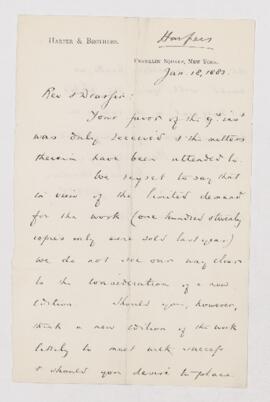 Harpers
HARPER & BROTHERS.
FRANKLIN SQUARE, NEW YORK.
Jan. 18, 1883
Rev & Dear Sir:
Your favor of the 9th inst
was duly received & the matters
therein have been attended to.
We regret to say that
in view of the limited demand
for the work (one hundred & twenty
copies only were sold last year)
we do not see our way clear
to the consideration of a new
edition. Should you, however,
think a new edition of the work
likely to meet with success
& should you desire to place